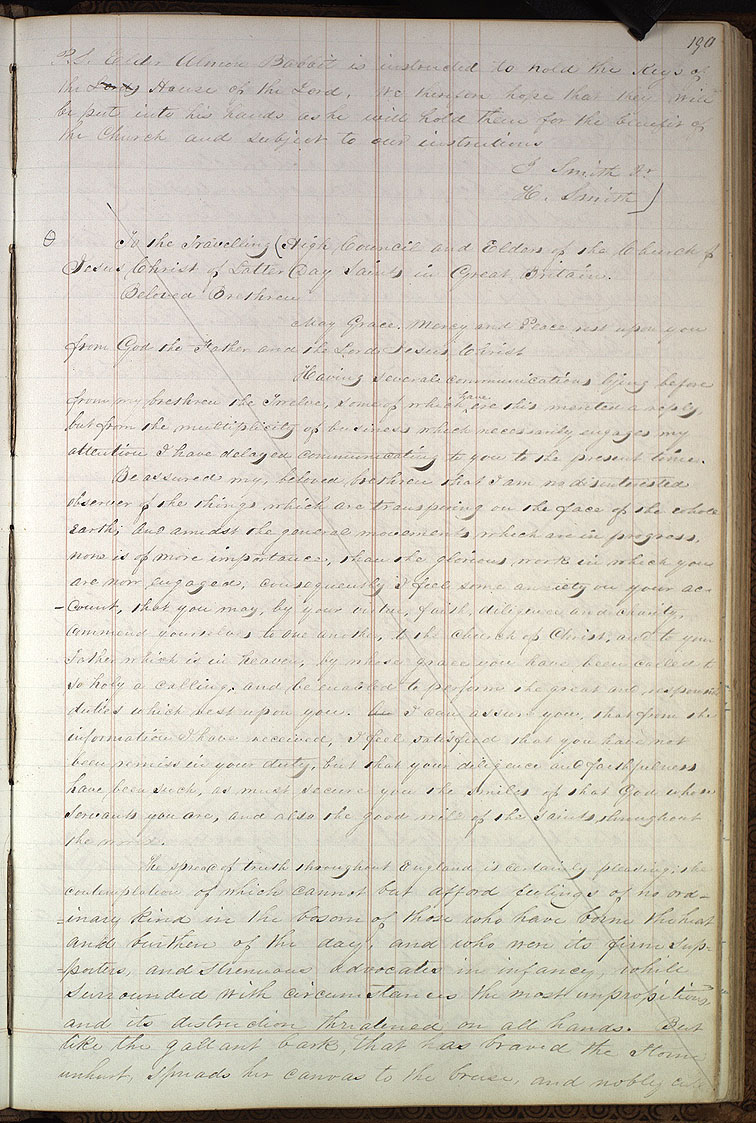 190
P.S. Elder Almon Babbit is instructed to hold the Keys of
the Lords House of the Lord, we therefore hope that they will
be put into his hands as he will hold them for the benefit of
the Church and subject to our instructions
J. Smith Jr
H. Smith
To the Travelling High Council and Elders of the Church of
Jesus Christ of Latter Day Saints in Great Britain.
Beloved Brethren
May Grace, Mercy and Peace rest upon you
from God the Father and the Lord Jesus Christ
Having several communications lying before
from my brethren the Twelve, some of which have ere this merited a reply,
but from the multiplicity of business which necessarily engages my
attention I have delayed communicating to you to the present time.
Be assured my beloved brethren that I am no disinterested
observer of the things which are transpiring on the face of the whole
Earth; and amidst the general movements which are in progress,
none is of more importance, than the glorious work in which you
are now engaged, consequently I feel some anxiety on your ac-
-count, that you may, by your virtue, faith, diligence and charity,
commend yourselves to one another, to the church of Christ, and to your
Father which is in heaven, by whose grace you have been called to
so holy a calling, and be enabled to perform the great and responsible
duties which rest upon you. I can assure you, that from the
information I have received, I feel satisfied that you have not
been remiss in your duty, but that your diligence and faithfulness
have been such, as must secure you the smiles of that God whose
servants you are, and also the good will of the Saints, throughout
the world.
The spread of truth throughout England is certainly pleasing; the
contemplation of which cannot but afford feelings of no ord-
=inary kind in the bosom of those who have borne the heat
and burthen of the day, and who were its firm sup-
=porters, and strenuous advocates in infancy, while
surrounded with circumstances the most unpropitious
and its destruction threatened on all hands. But
like the gallant bark, that has braved the Storm
unhurt, spreads her canvas to the breese, and nobly